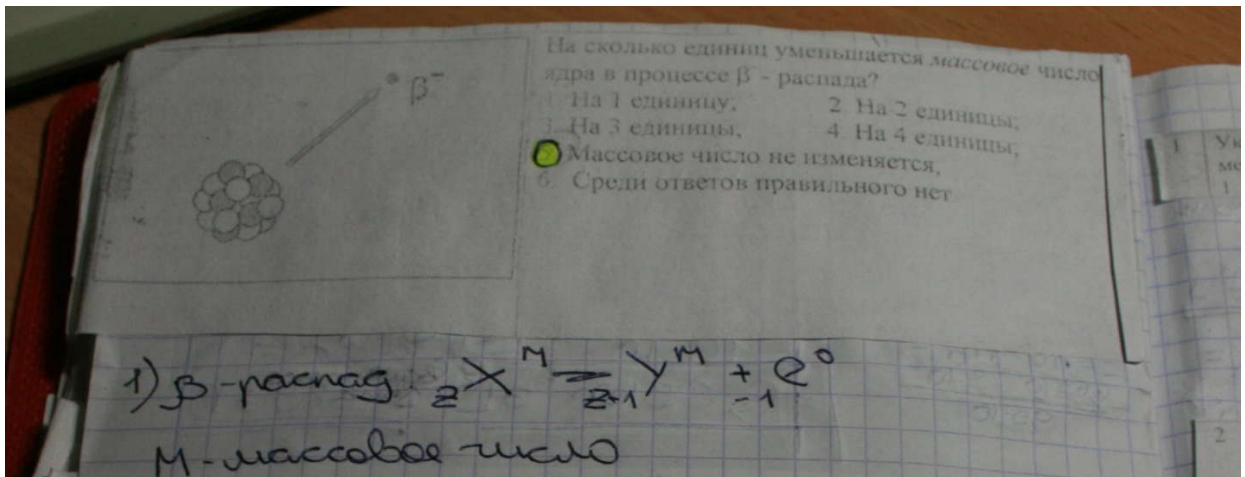 На сколько единиц уменьшается массовое число
ядра в процессе β⁻ - распада?
1. На 1 единицу, 2. На 2 единицы,
3. На 3 единицы, 4. На 4 единицы,
Массовое число не изменяется,
6. Среди ответов правильного нет
β⁻
1) β-распад: zXᴹ = z-1Yᴹ + -1e⁰
М-массовое число
1
2